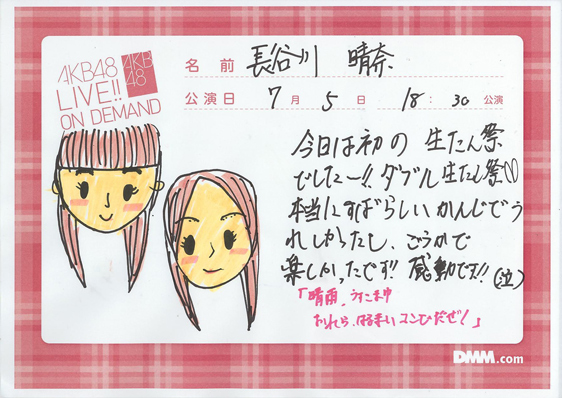 AKB48
LIVE!!
ON DEMAND
AKB
48
名前 長谷川 晴奈
公演日 7月 5日 18:30 公演
今日は初の 生たん祭
でしたー!! ダブル生たん祭♡
本当にすばらしいかんじでう
れしかったし、ごうかで
楽しかったです!! 感動です!! (泣)
「晴雨、
コンビだぜ!」
DMM.com